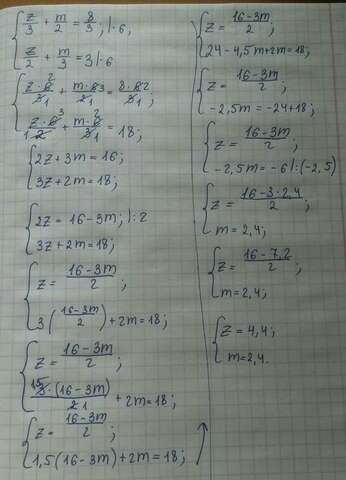 z/3 + m/2 = 8/3; |·6
z/2 + m/3 = 3 |·6
z·6²/3₁ + m·6³/2₁ = 8·6²/3₁;
z·6³/2₁ + m·6²/3₁ = 18;
2z+3m=16;
3z+2m=18;
2z=16-3m; |:2
3z+2m=18;
z = (16-3m)/2;
3((16-3m)/2)+2m=18;
z = (16-3m)/2;
3·(16-3m)/2 + 2m=18;
z = (16-3m)/2;
1,5(16-3m)+2m=18;
z = (16-3m)/2;
24-4,5m+2m=18;
z = (16-3m)/2;
-2,5m=-24+18;
z = (16-3m)/2;
-2,5m=-6 |:(-2,5)
z = (16-3·2,4)/2;
m=2,4;
z = (16-7,2)/2;
m=2,4;
z=4,4;
m=2,4.